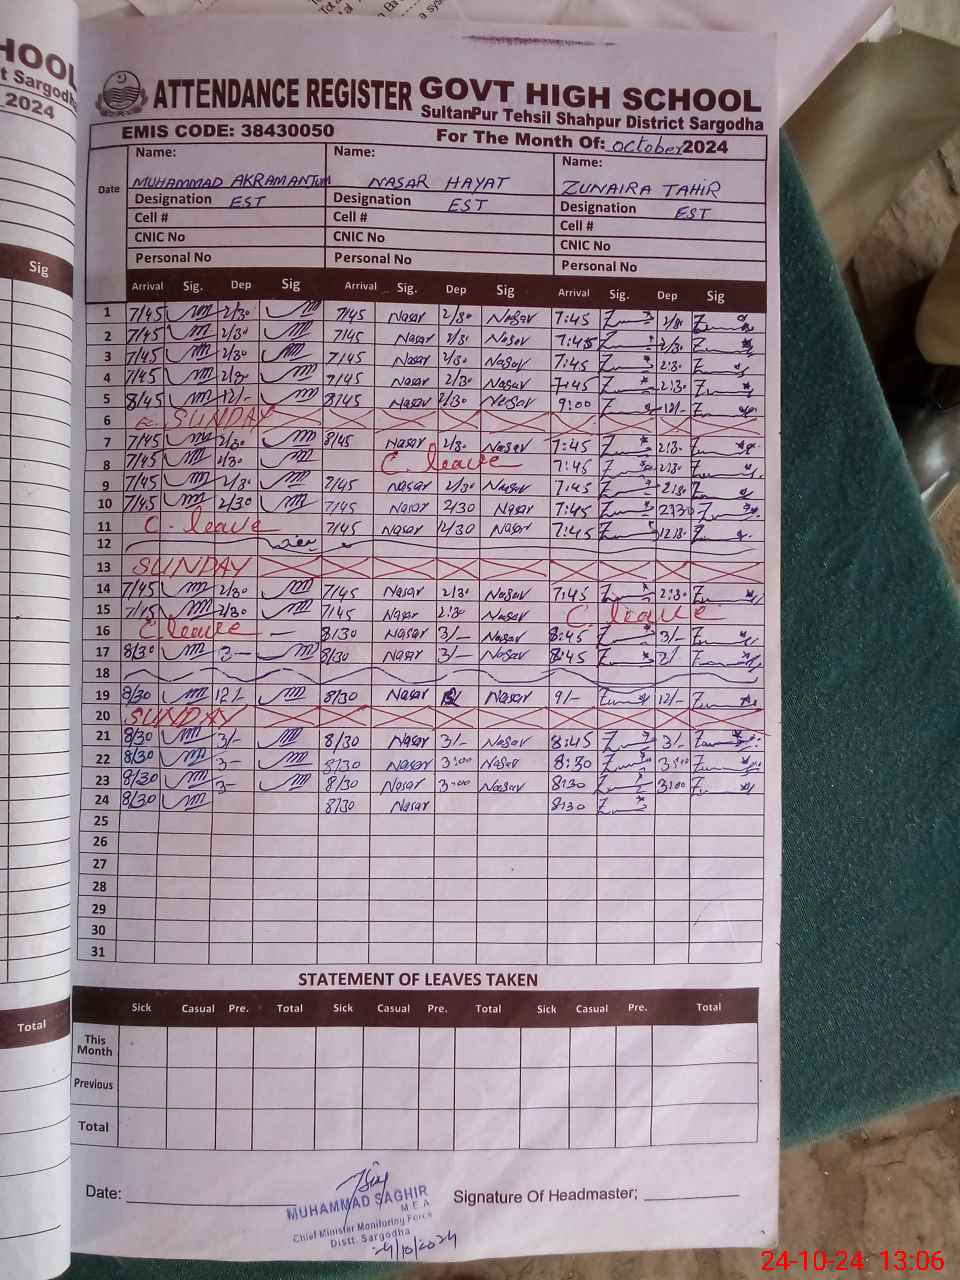 HOOL
t Sargodha
2024
Sig
Total
ATTENDANCE REGISTER GOVT HIGH SCHOOL
SultanPur Tehsil Shahpur District Sargodha
EMIS CODE: 38430050 For The Month Of: October 2024
Date Name: Name: Name:
MUHAMMAD AKRAM ANJUM NASAR HAYAT ZUNAIRA TAHIR
Designation EST Designation EST Designation EST
Cell # Cell # Cell #
CNIC No CNIC No CNIC No
Personal No Personal No Personal No
Arrival Sig. Dep Sig Arrival Sig. Dep Sig Arrival Sig. Dep Sig
1 7/45 2/30 7/45 Nasar 2/30 Nasar 7:45 2/30
2 7/45 2/30 7/45 Nasar 2/30 Nasar 7:45 2/30
3 7/45 2/30 7/45 Nasar 2/30 Nasar 7:45 2:30
4 7/45 2/30 7/45 Nasar 2/30 Nasar 7:45 2:30
5 8/45 12/- 8/45 Nasar Nasar 9:00 12/-
6 SUNDAY
7 7/45 2/30 8/45 Nasar 2/30 Nasar 7:45 2:30
8 7/45 2/30 C. leave 7:45 2:30
9 7/45 2/30 7/45 Nasar 2/30 Nasar 7:45 2:30
10 7/45 2/30 7/45 Nasar 2/30 Nasar 7:45 2:30
11 C. leave 7/45 Nasar 12/30 Nasar 7:45 12:30
12
13 SUNDAY
14 7/45 2/30 7/45 Nasar 2/30 Nasar 7:45 2:30
15 2/30 7/45 Nasar 2:30 Nasar C. leave
16 C. leave - 8/30 Nasar 3/- Nasar 8:45 3/-
17 8/30 3- 8/30 Nasar 3/- Nasar 8:45
18
19 8/30 12/ 8/30 Nasar Nasar 9/- 12/-
20 SUNDAY
21 8/30 3/- 8/30 Nasar 3/- Nasar 8:45 3/-
22 8/30 3- 8/30 Nasar 3:00 Nasar 8:30 3:00
23 8/30 3- 8/30 Nasar 3-00 Nasar 8:30 3:00
24 8/30 8/30 Nasar 8:30
25
26
27
28
29
30
31
STATEMENT OF LEAVES TAKEN
Sick Casual Pre. Total Sick Casual Pre. Total Sick Casual Pre. Total
This Month
Previous
Total
Date: Signature Of Headmaster;
MUHAMMAD SAGHIR
M.E.A
Chief Minister Monitoring Force
Distt. Sargodha
24/10/2024
24-10-24 13:06